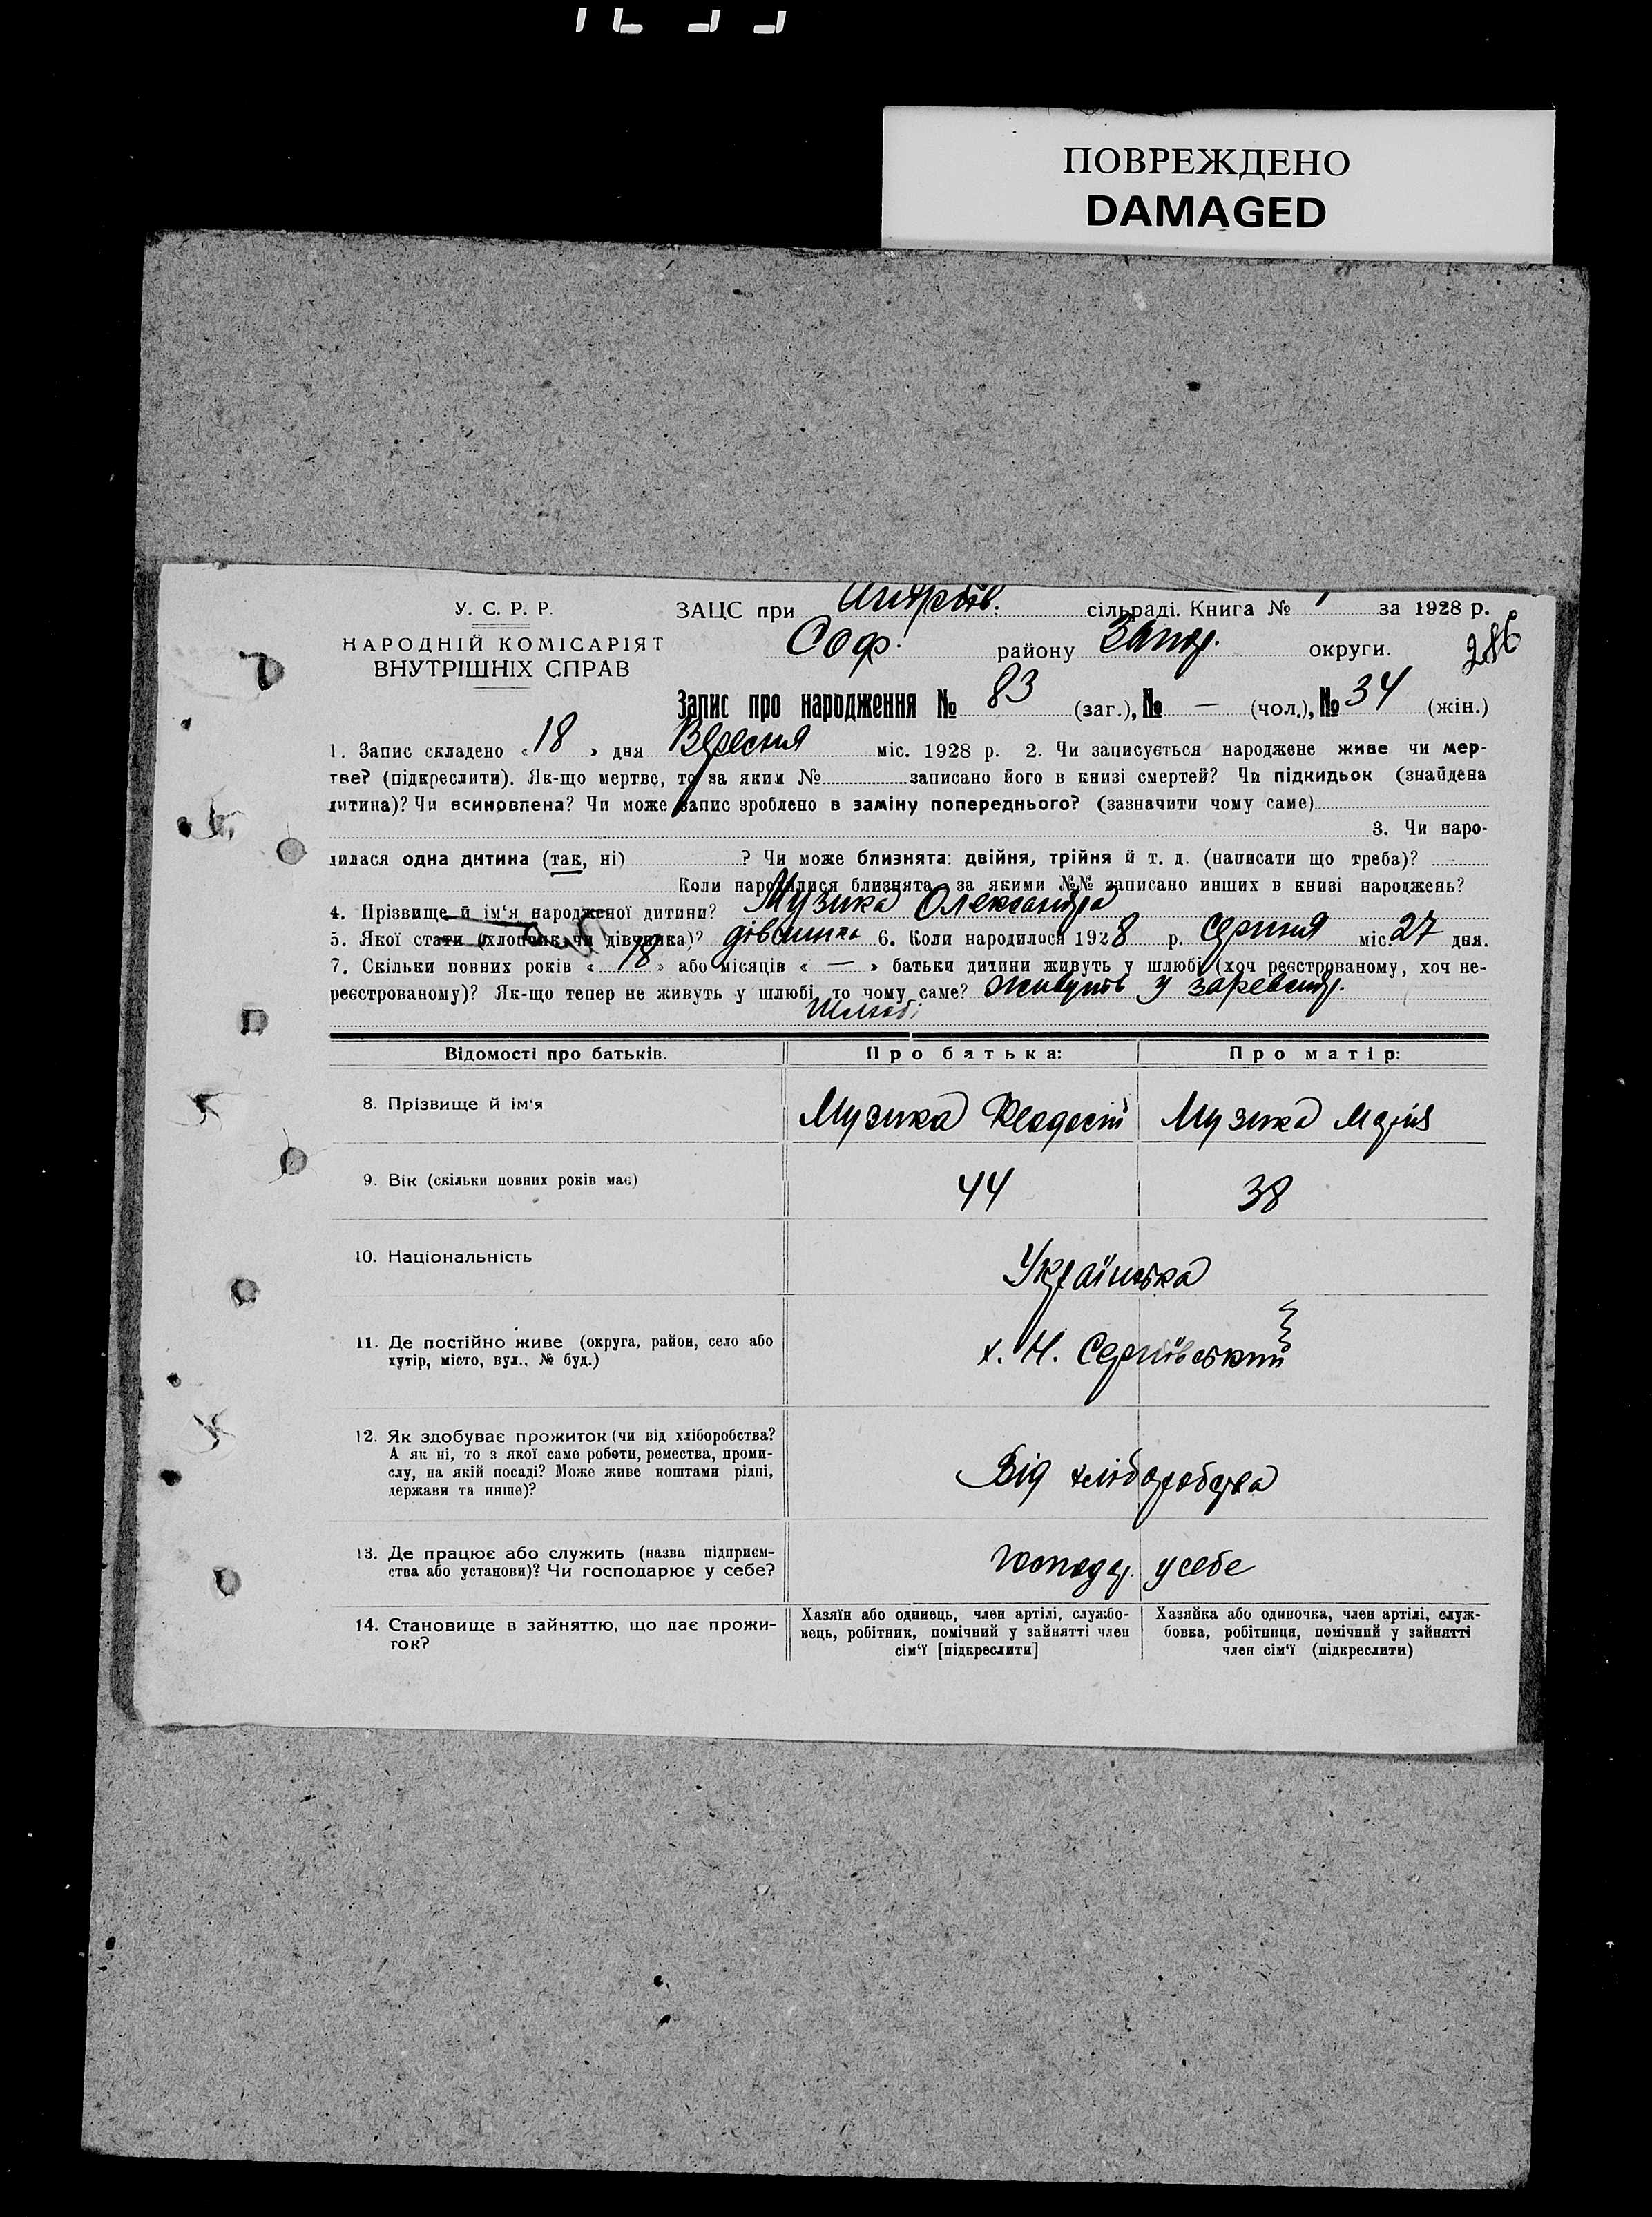 ПОВРЕЖДЕНО
DAMAGED
У. С. Р. Р.
НАРОДНІЙ КОМІСАРІЯТ
ВНУТРІШНІХ СПРАВ
ЗАЦС при сільраді. Книга № за 1928 р.
Соф. району Запор. округи.
286
Запис про народження № 83 (заг.), № — (чол.), № 34 (жін.)
1. Запис складено « 18 » дня Вересня міс. 1928 р. 2. Чи записується народжене живе чи мер-
тве? (підкреслити). Як-що мертве, то за яким № записано його в книзі смертей? Чи підкидьок (знайдена
дитина)? Чи всиновлена? Чи може запис зроблено в заміну попереднього? (зазначити чому саме)
3. Чи наро-
дилася одна дитина (так, ні) ? Чи може близнята: двійня, трійня й т. д. (написати що треба)?
Коли народилися близнята, за якими №№ записано инших в книзі народжень?
4. Прізвище й ім‘я народженої дитини? Музика Олександра
5. Якої стати (хлопчик чи дівчинка)? дівчинка 6. Коли народилося 1928 р. серпня міс. 27 дня.
7. Скільки повних років « 18 » або місяців « — » батьки дитини живуть у шлюбі (хоч реєстрованому, хоч не-
реєстрованому)? Як-що тепер не живуть у шлюбі, то чому саме? Живуть у зареєстр.
шлюбі
Відомості про батьків. Про батька: Про матір:
8. Прізвище й ім‘я Музика Феодосій Музика Марія
9. Вік (скільки повних років має) 44 38
10. Національність Українська
11. Де постійно живе (округа, район, село або
хутір, місто, вул., № буд.) х. Н. Сергіївський
12. Як здобуває прожиток (чи від хліборобства?
А як ні, то з якої саме роботи, ремества, проми-
слу, на якій посаді? Може живе коштами рідні,
держави та инше)? Від хліборобства
13. Де працює або служить (назва підприєм-
ства або установи)? Чи господарює у себе? господар. у себе
14. Становище в зайняттю, що дає прожи-
ток?
Хазяїн або одинець, член артілі, службо-
вець, робітник, помічний у зайнятті член
сім‘ї [підкреслити]
Хазяйка або одиночка, член артілі, служ-
бовка, робітниця, помічний у зайнятті
член сім‘ї (підкреслити)